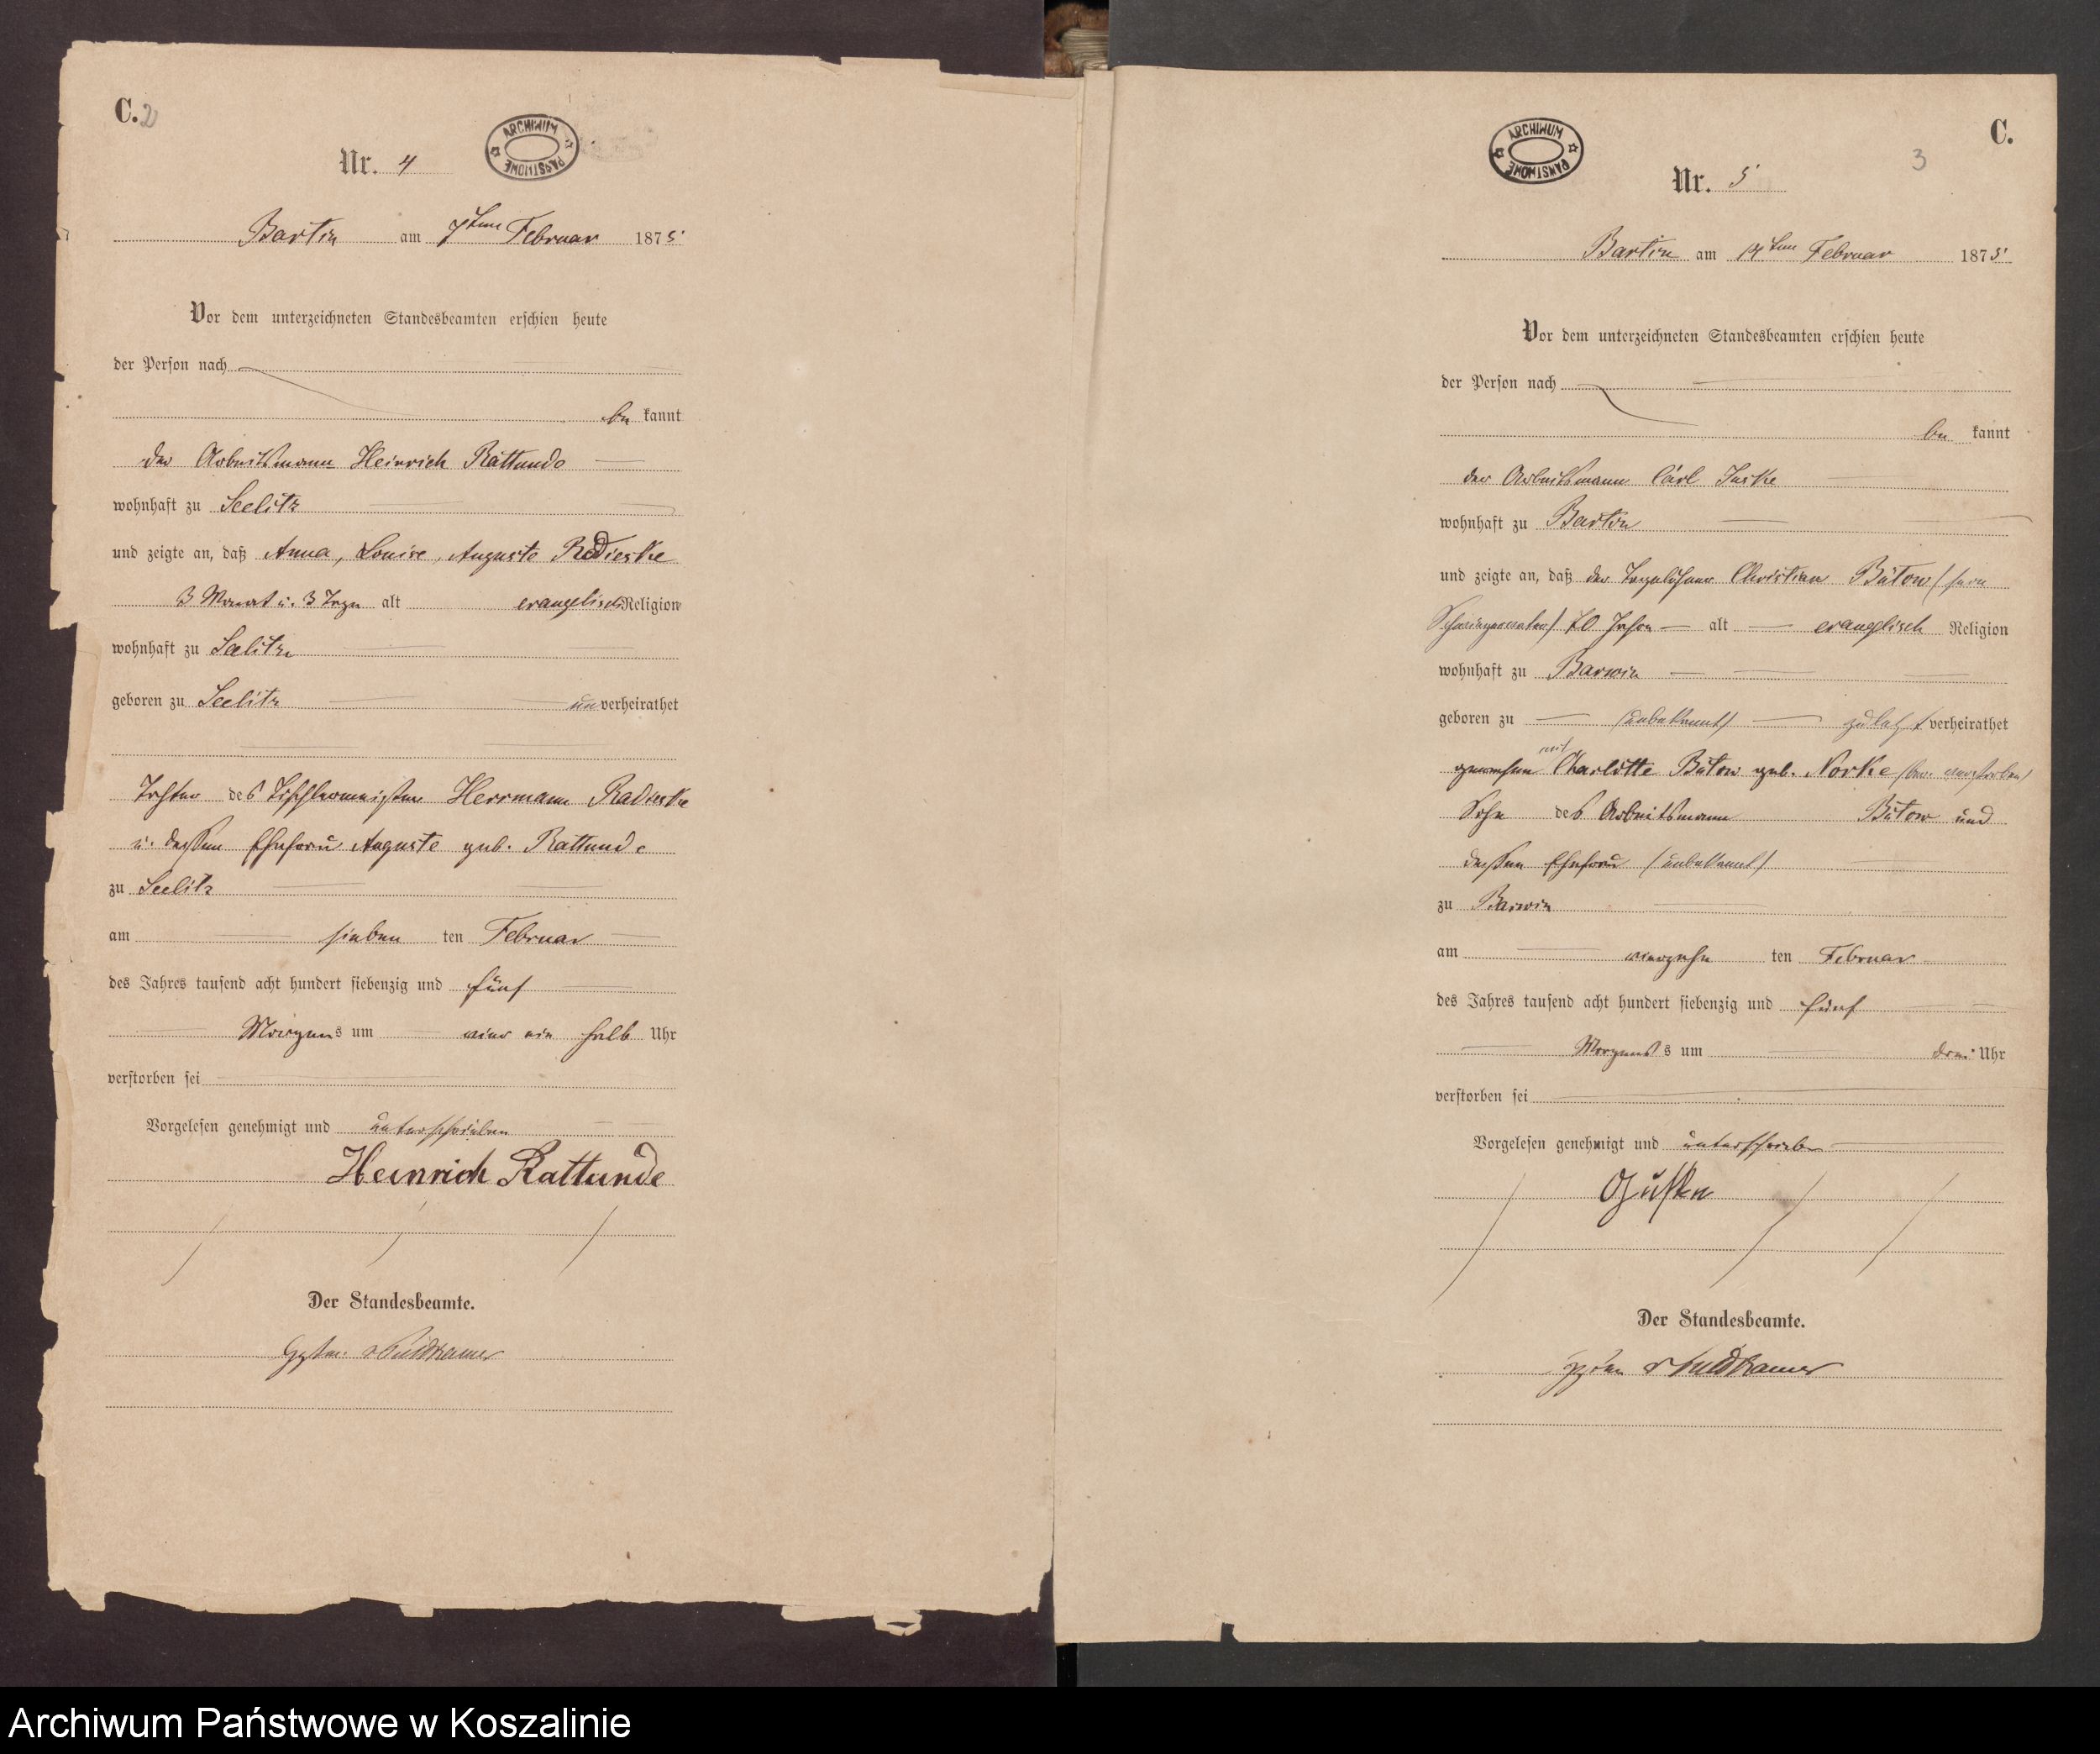 C. 2
ARCHIWUM PAŃSTWOWE
Nr. 4
Bartin am 7ten Februar 1875
Vor dem unterzeichneten Standesbeamten erschien heute
der Person nach
be kannt
der Arbeitsmann Heinrich Rattunde
wohnhaft zu Seelitz
und zeigte an, daß Anna, Louise, Auguste Radieske
3 Monat u. 3 Tage alt evangelisch Religion
wohnhaft zu Seelitz
geboren zu Seelitz unverheirathet
Tochter des Tischlermeister Herrmann Radieske
u. dessen Ehefrau Auguste geb. Rattunde
zu Seelitz
am sieben ten Februar
des Jahres tausend acht hundert siebenzig und fünf
Morgens um vier ein halb Uhr
verstorben sei
Vorgelesen genehmigt und unterschrieben
Heinrich Rattunde
Der Standesbeamte.
v Puttkamer
C.
3
ARCHIWUM PAŃSTWOWE
Nr. 5
Bartin am 14ten Februar 1875
Vor dem unterzeichneten Standesbeamten erschien heute
der Person nach
be kannt
der Arbeitsmann Carl Juske
wohnhaft zu Bartin
und zeigte an, daß der Tagelöhner Christian Bütow
70 Jahre alt evangelisch Religion
wohnhaft zu Barwin
geboren zu (unbekannt) zuletzt verheirathet
gewesen mit Charlotte Bütow geb. Norke
Sohn des Arbeitsmann Bütow und
dessen Ehefrau (unbekannt)
zu Barwin
am vierzehn ten Februar
des Jahres tausend acht hundert siebenzig und fünf
Morgens s um drei Uhr
verstorben sei
Vorgelesen genehmigt und unterschrieben
Der Standesbeamte.
v Puttkamer
Archiwum Państwowe w Koszalinie